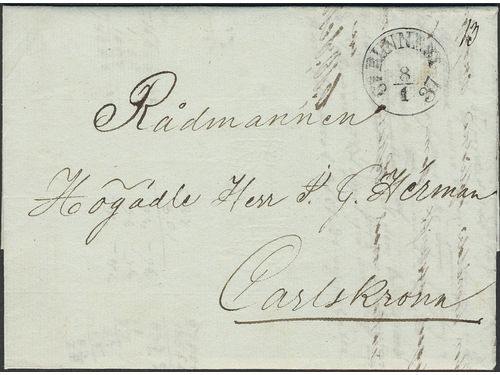 8
1
37
13
Rådmannen
Högädle Herr P. G. Herman
Carlskrona